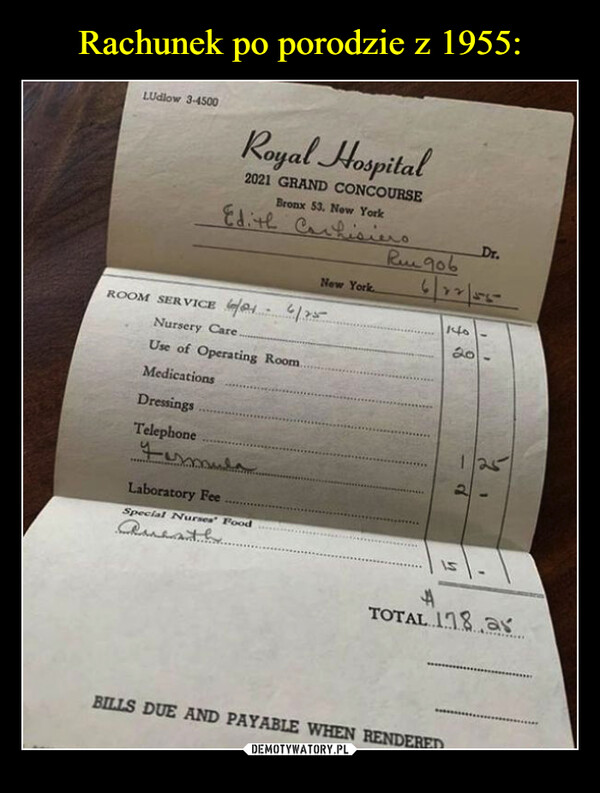 Rachunek po porodzie z 1955:
LUdlow 3-4500
Royal Hospital
2021 GRAND CONCOURSE
Bronx 53, New York
Edith
Dr.
Rm 906
New York 6/22/55
ROOM SERVICE 6/21 - 6/25 140 -
Nursery Care 20 -
Use of Operating Room
Medications
Dressings
Telephone 1 25
Formula 2 -
Laboratory Fee
Special Nurses' Food
15 -
TOTAL $178.25
BILLS DUE AND PAYABLE WHEN RENDERED
DEMOTYWATORY.PL